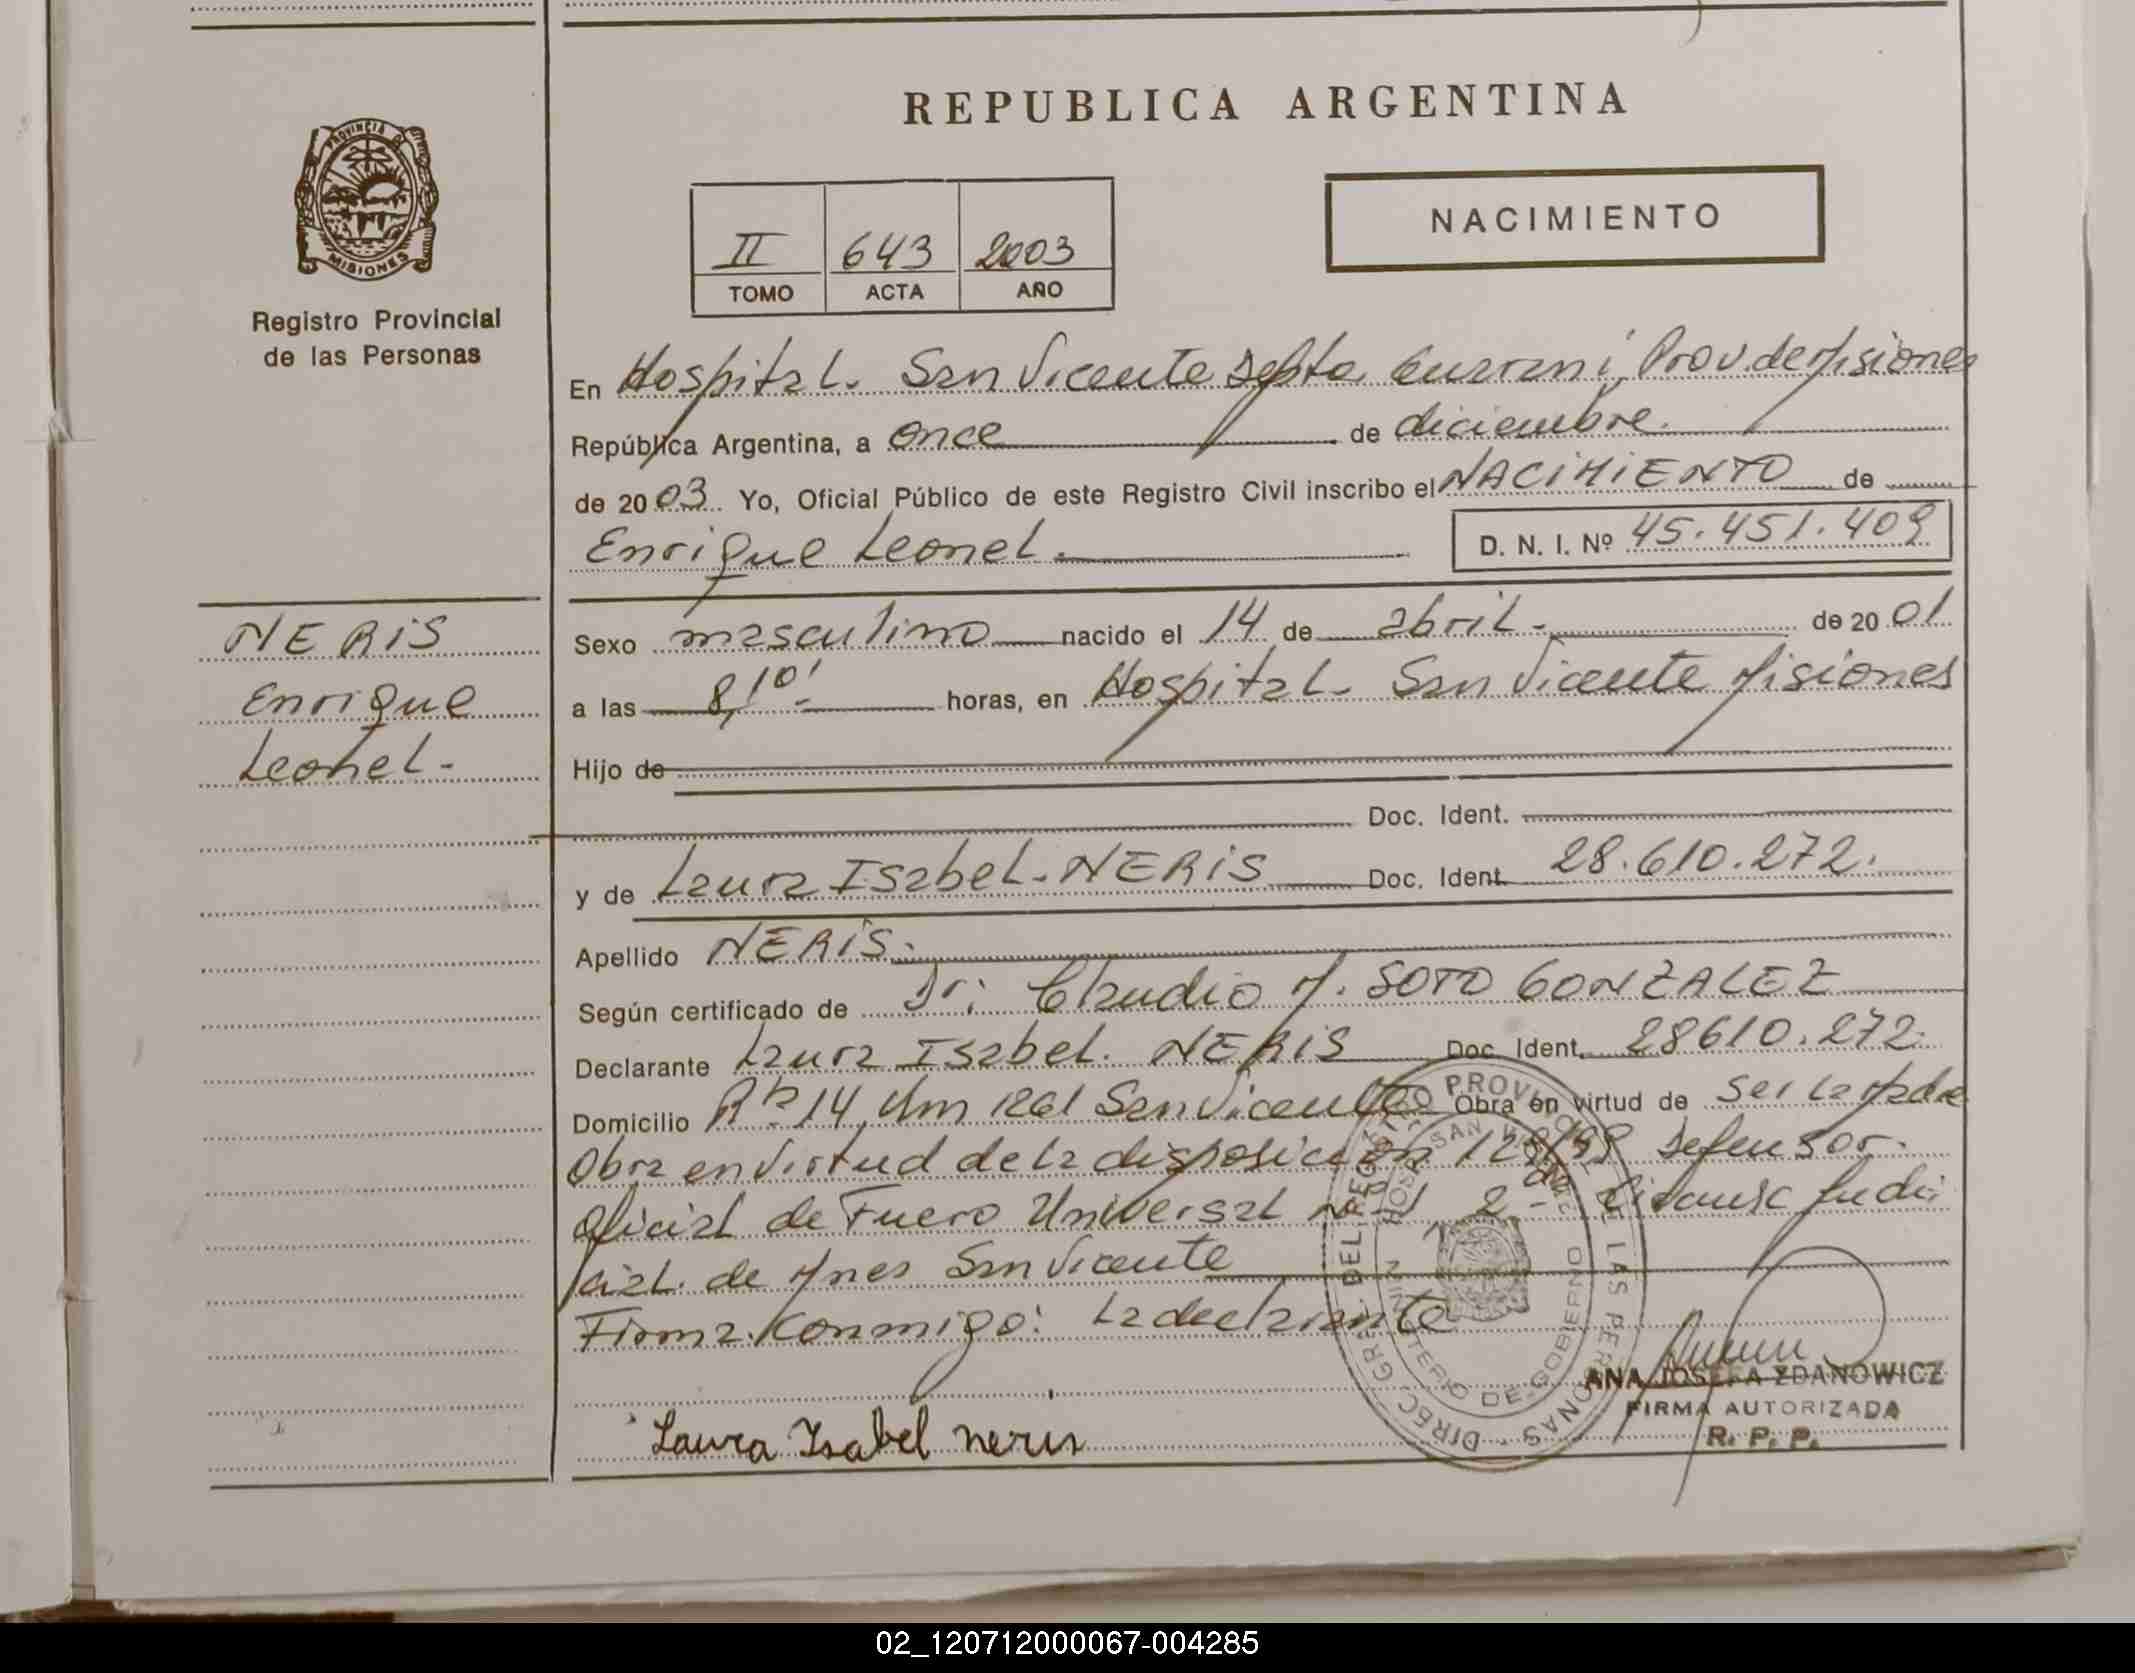 REPUBLICA ARGENTINA
PROVINCIA DE
MISIONES
Registro Provincial
de las Personas
II 643 2003
TOMO ACTA AÑO
NACIMIENTO
En Hospital. San Vicente Depto Guarani, Prov. de Misiones
República Argentina, a once de diciembre.
de 2003 Yo, Oficial Público de este Registro Civil inscribo el NACIMIENTO de
Enrique Leonel. D. N. I. Nº 45.451.409
NERIS
Enrique
Leonel.-
Sexo masculino nacido el 14 de abril.- de 2001
a las 8,10'- horas, en Hospital. San Vicente Misiones
Hijo de
Doc. Ident.
y de Laura Isabel. NERIS Doc. Ident. 28.610.272.
Apellido NERIS.
Según certificado de Dr: Claudio M. SOTO GONZALEZ
Declarante Laura Isabel. NERIS Doc. Ident. 28610.272.
Domicilio Rta 14, Km 1261 San Vicente Obra en virtud de Ser la Madre
Obra en virtud de la disposición 128/99 Defensor.
Oficial de Fuero Universal Nº 1 2da Judi:
cial. de Mnes San Vicente
Firma. Conmigo: La declarante
Laura Isabel neris
DIREC. GRAL. DEL REGISTRO PROVINCIAL DE LAS PERSONAS
MINISTERIO DE GOBIERNO
HOSP. SAN VICENTE
ANA JOSEFA ZDANOWICZ
FIRMA AUTORIZADA
R. P. P.
02_120712000067-004285